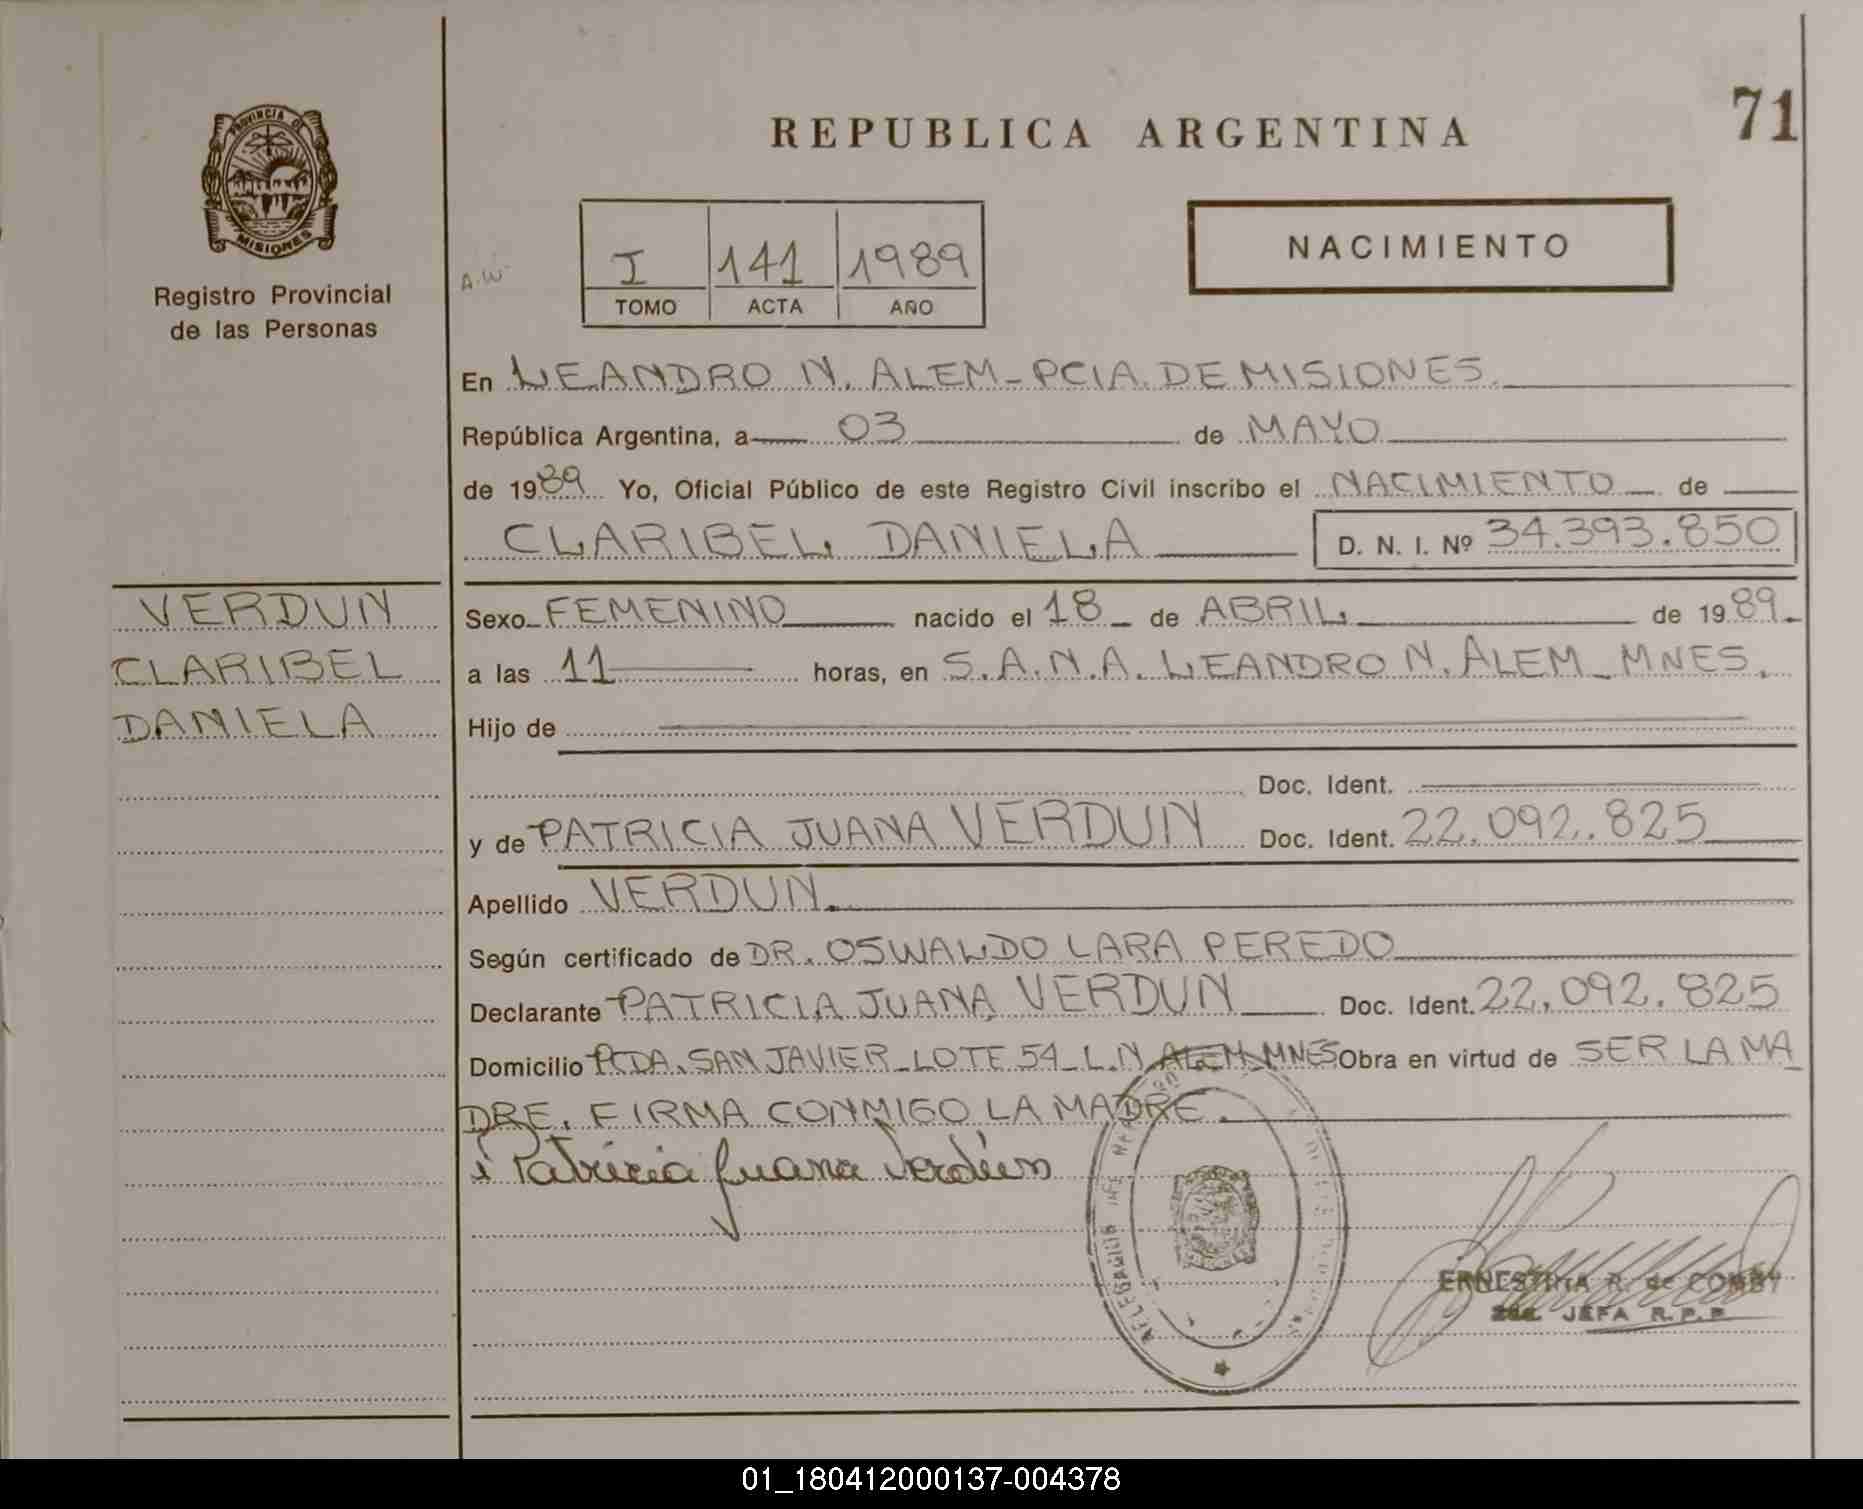 71
REPUBLICA ARGENTINA
PROVINCIA DE
MISIONES
Registro Provincial
de las Personas
A.W
I 141 1989
TOMO ACTA AÑO
NACIMIENTO
En LEANDRO N. ALEM - PCIA. DE MISIONES.
República Argentina, a 03 de MAYO
de 1989 Yo, Oficial Público de este Registro Civil inscribo el NACIMIENTO de
CLARIBEL DANIELA D. N. I. Nº 34.393.850
VERDUN
CLARIBEL
DANIELA
Sexo FEMENINO nacido el 18 de ABRIL de 1989
a las 11 horas, en S.A.N.A. LEANDRO N. ALEM - MNES.
Hijo de
Doc. Ident.
y de PATRICIA JUANA VERDUN Doc. Ident. 22.092.825
Apellido VERDUN.
Según certificado de DR. OSWALDO LARA PEREDO
Declarante PATRICIA JUANA VERDUN Doc. Ident. 22.092.825
Domicilio PCDA. SAN JAVIER - LOTE 54 - L.N. ALEM. MNES Obra en virtud de SER LA MA
DRE. FIRMA CONMIGO LA MADRE.
Patricia Juana Verdún
ERNESTINA R. de
JEFA R.P.P.
01_180412000137-004378